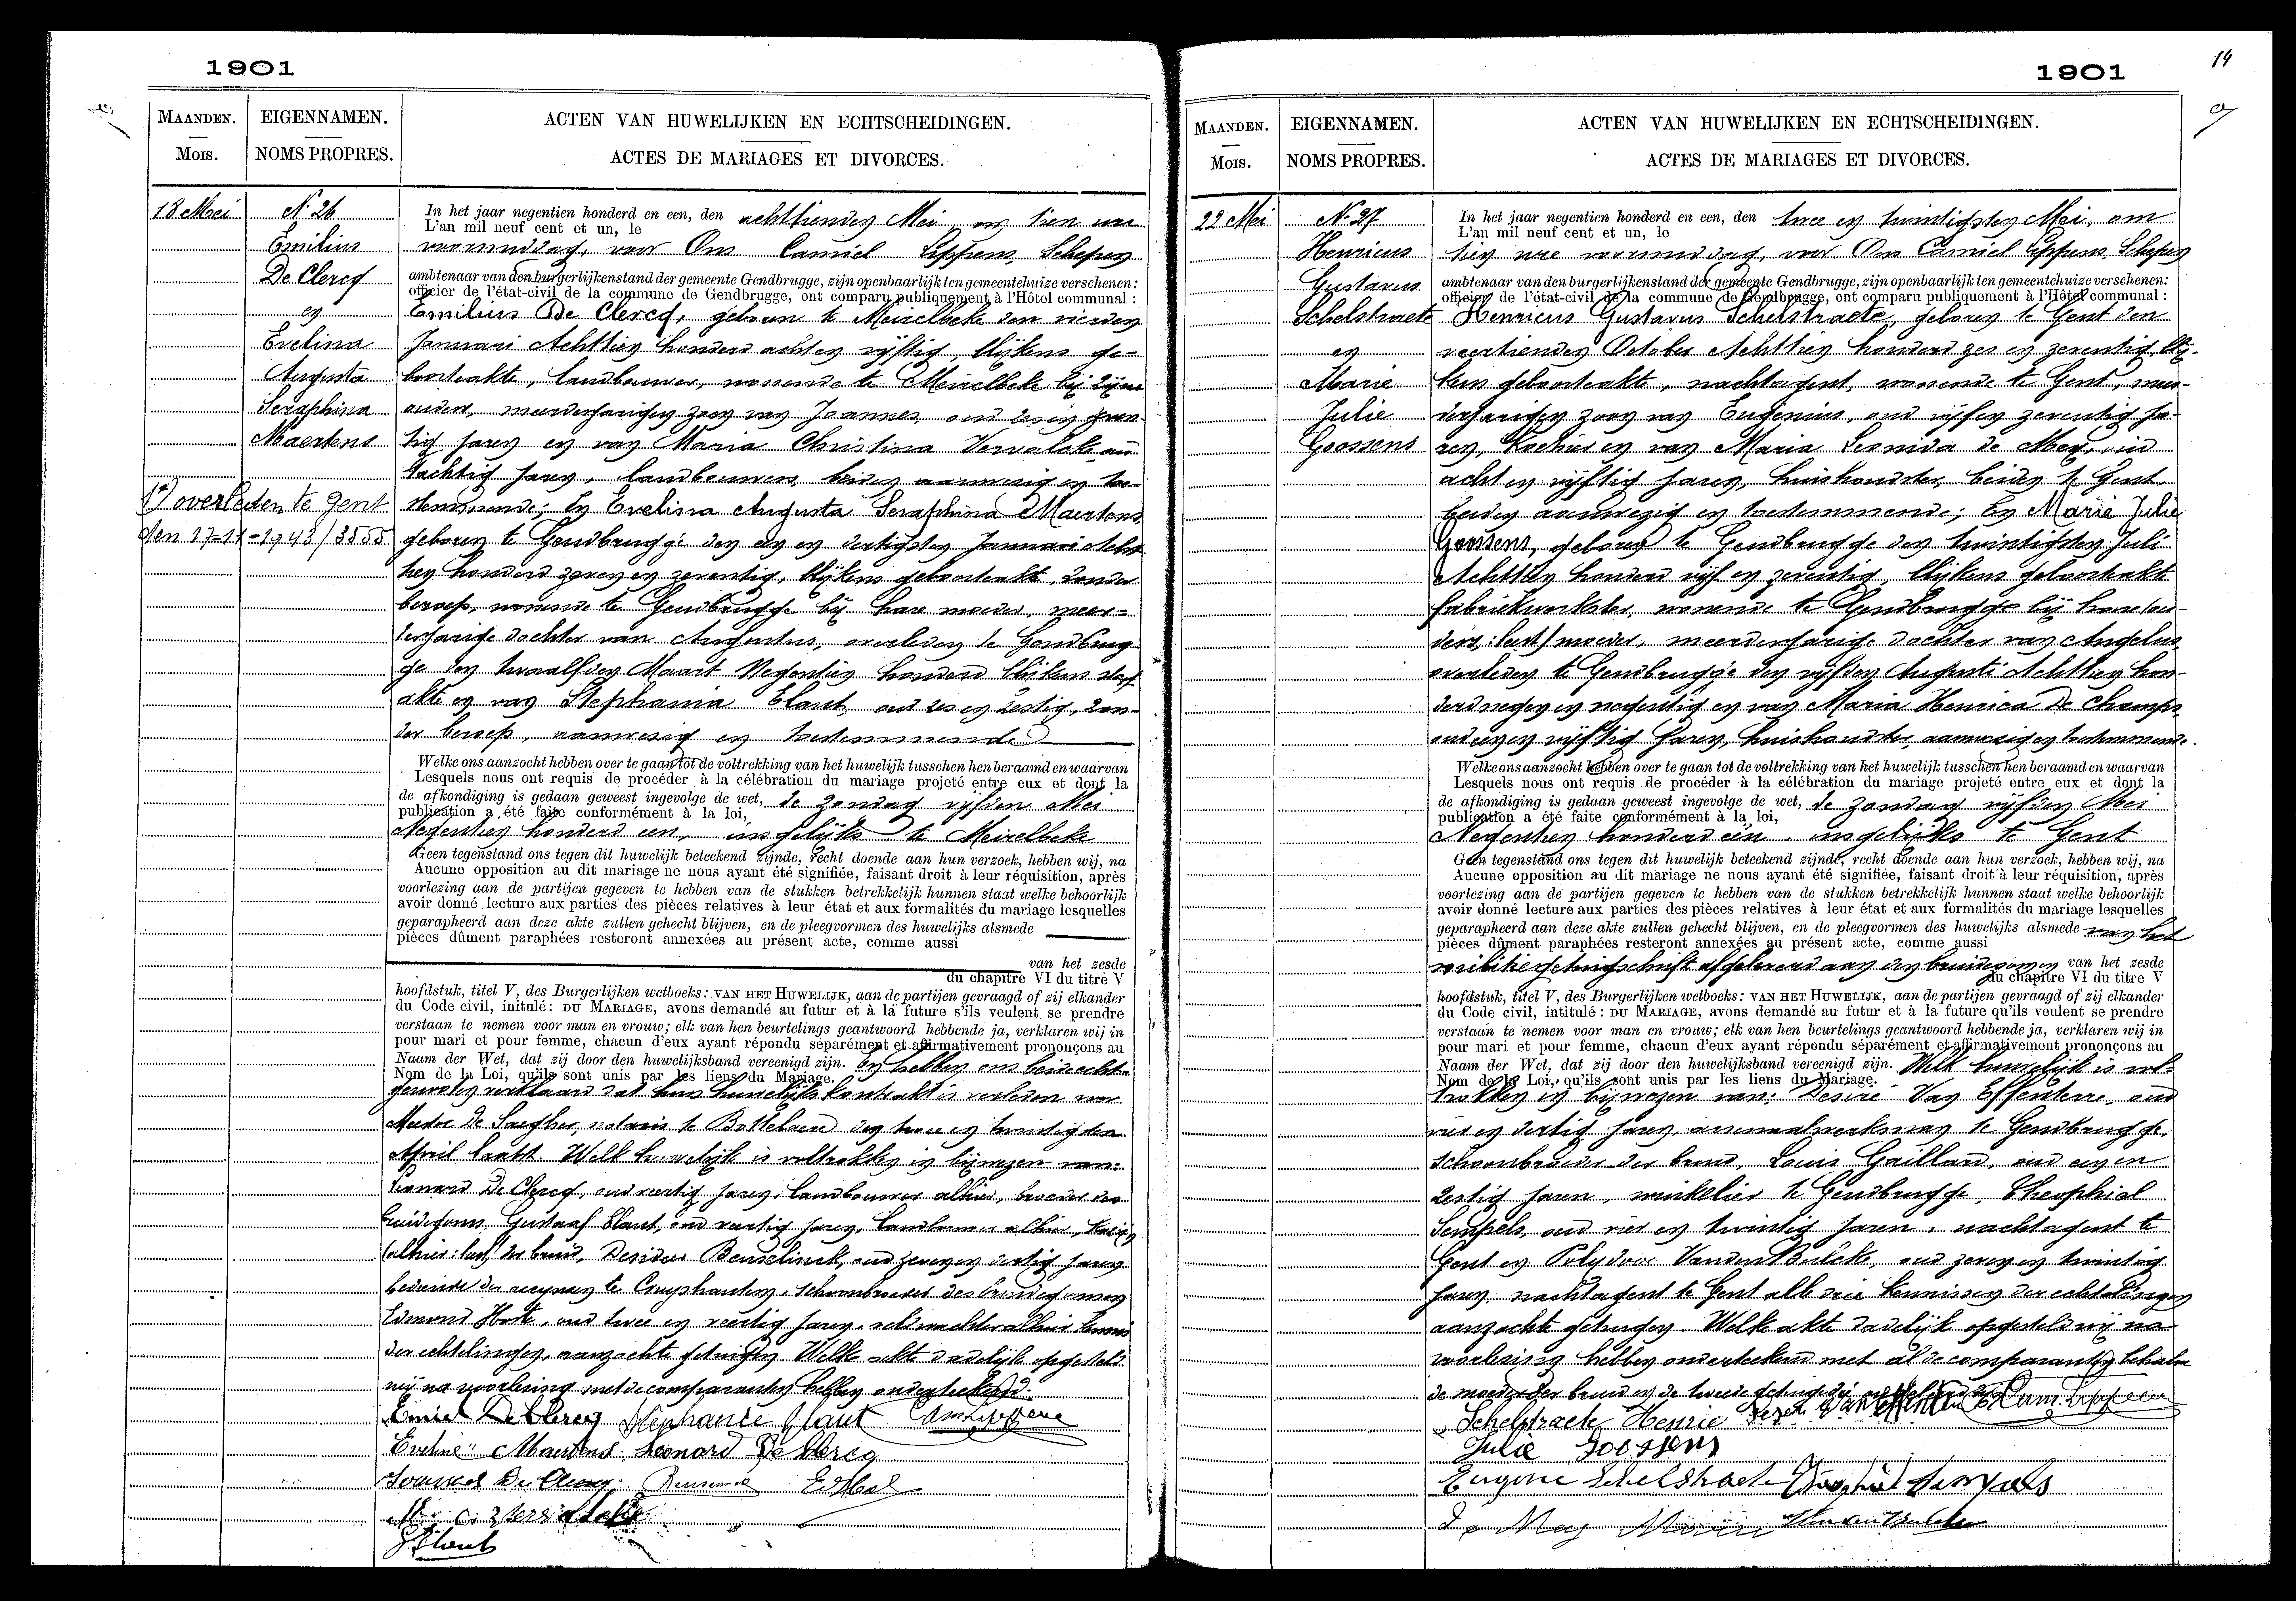 1901
MAANDEN.
MOIS.
EIGENNAMEN.
NOMS PROPRES.
ACTEN VAN HUWELIJKEN EN ECHTSCHEIDINGEN.
ACTES DE MARIAGES ET DIVORCES.
18 Mei
N. 26
Emilius
De Clercq
en
Evelina
Augusta
Seraphina
Maertens
1°) overleden te Gent
den 17-11-1943/3555
In het jaar negentien honderd en een, den achttienden Mei, om tien ure
L'an mil neuf cent et un, le
voormiddag, voor Ons Camiel Lippens, Schepen
ambtenaar van den burgerlijkenstand der gemeente Gendbrugge, zijn openbaarlijk ten gemeentehuize verschenen:
officier de l'état-civil de la commune de Gendbrugge, ont comparu publiquement à l'Hôtel communal :
Emilius De Clercq, geboren te Meirelbeke den vierden
Januari Achttien honderd acht en vijftig, blijkens ge-
boorteakte, landbouwer, wonende te Meirelbeke bij zijne
ouders, meerderjarigen zoon van Joannes, oud zes en zeven
tig jaren en van Maria Christina
tachtig jaren, landbouwers, beiden aanwezig en toe-
stemmende; En Evelina Augusta Seraphina Maertens,
geboren te Gendbrugge den een en dertigsten Januari Acht
tien honderd zeven en zeventig, blijkens geboorteakte, zonder
beroep, wonende te Gendbrugge bij hare moeder, meer-
derjarige dochter van Augustus, overleden te Gendbrug
ge den twaalfden Maart Negentien honderd blijkens sterf
akte en van Stephania Elaut, oud zes en zestig, zon-
der beroep, aanwezig en toestemmende
Welke ons aanzocht hebben over te gaan tot de voltrekking van het huwelijk tusschen hen beraamd en waarvan
Lesquels nous ont requis de procéder à la célébration du mariage projeté entre eux et dont la
de afkondiging is gedaan geweest ingevolge de wet, de zondag vijfden Mei
publication a été faite conformément à la loi,
Negentien honderd een, insgelijks te Meirelbeke
Geen tegenstand ons tegen dit huwelijk beteekend zijnde, recht doende aan hun verzoek, hebben wij, na
Aucune opposition au dit mariage ne nous ayant été signifiée, faisant droit à leur réquisition, après
voorlezing aan de partijen gegeven te hebben van de stukken betrekkelijk hunnen staat welke behoorlijk
avoir donné lecture aux parties des pièces relatives à leur état et aux formalités du mariage lesquelles
geparapheerd aan deze akte zullen gehecht blijven, en de pleegvormen des huwelijks alsmede
pièces dûment paraphées resteront annexées au présent acte, comme aussi
van het zesde
du chapitre VI du titre V
hoofdstuk, titel V, des Burgerlijken wetboeks: VAN HET HUWELIJK, aan de partijen gevraagd of zij elkander
du Code civil, intitulé: DU MARIAGE, avons demandé au futur et à la future s'ils veulent se prendre
verstaan te nemen voor man en vrouw; elk van hen beurtelings geantwoord hebbende ja, verklaren wij in
pour mari et pour femme, chacun d'eux ayant répondu séparément et affirmativement prononçons au
Naam der Wet, dat zij door den huwelijksband vereenigd zijn. En hebben ons beide echt-
Nom de la Loi, qu'ils sont unis par les liens du Mariage.
genooten verklaard dat hun huwelijkskontrakt is verleden voor
Meester De Saegher, notaris te Bottelaere den twee en twintigsten
April laatst. Welk huwelijk is voltrokken in bijwezen van:
Leonard De Clercq, oud veertig jaren, landbouwer alhier, broeder des
bruidegoms, Gustaaf Elaut, oud veertig jaren, landbouwer alhier, kozijn
(alhier: lees) der bruid, Desider oud zeven en dertig jaren
bediende der accijnzen te Cruyshautem, schoonbroeder des bruidegoms en
Edmond Hoste, oud twee en veertig jaren, veldwachter alhier kennis
der echtelingen, aanzochte getuigen. Welke akte dadelijk opgesteld
wij na voorlezing met de comparanten hebben onderteekend.
Emiel De Clercq Stephanie Elaut Cam Lippens
Eveline Maertens Leonard De Clercq
De Clercq
Elaut
1901
14
MAANDEN.
MOIS.
EIGENNAMEN.
NOMS PROPRES.
ACTEN VAN HUWELIJKEN EN ECHTSCHEIDINGEN.
ACTES DE MARIAGES ET DIVORCES.
22 Mei
N. 27
Henricus
Gustavus
Schelstraete
en
Marie
Julie
Goossens
In het jaar negentien honderd en een, den twee en twintigsten Mei, om
L'an mil neuf cent et un, le
tien ure voormiddag, voor Ons Camiel Lippens, Schepen
ambtenaar van den burgerlijkenstand der gemeente Gendbrugge, zijn openbaarlijk ten gemeentehuize verschenen:
officier de l'état-civil de la commune de Gendbrugge, ont comparu publiquement à l'Hôtel communal :
Henricus Gustavus Schelstraete, geboren te Gent den
veertienden October Achttien honderd zes en zeventig, blij-
kens geboorteakte, nachtagent, wonende te Gent, meer-
derjarigen zoon van Eugenius, oud vijf en zeventig ja-
ren, en van Maria Leonida de Mey, oud
acht en vijftig jaren, huishoudster, beiden te Gent,
beiden aanwezig en toestemmende; En Marie Julie
Goossens, geboren te Gendbrugge den twintigsten Juli
Achttien honderd vijf en zeventig, blijkens geboorteakte
fabriekwerkster, wonende te Gendbrugge bij hare (ou-
ders: lees) moeder, meerderjarige dochter van Angelus,
overleden te Gendbrugge den vijfden Augusti Achttien hon-
derd negen en negentig en van Maria Henrica De Champs,
oud een en vijftig jaren, huishoudster, aanwezig en toestemmende.
Welke ons aanzocht hebben over te gaan tot de voltrekking van het huwelijk tusschen hen beraamd en waarvan
Lesquels nous ont requis de procéder à la célébration du mariage projeté entre eux et dont la
de afkondiging is gedaan geweest ingevolge de wet, de zondag vijfden Mei
publication a été faite conformément à la loi,
Negentien honderd een, insgelijks te Gent
Geen tegenstand ons tegen dit huwelijk beteekend zijnde, recht doende aan hun verzoek, hebben wij, na
Aucune opposition au dit mariage ne nous ayant été signifiée, faisant droit à leur réquisition, après
voorlezing aan de partijen gegeven te hebben van de stukken betrekkelijk hunnen staat welke behoorlijk
avoir donné lecture aux parties des pièces relatives à leur état et aux formalités du mariage lesquelles
geparapheerd aan deze akte zullen gehecht blijven, en de pleegvormen des huwelijks alsmede van het
pièces dûment paraphées resteront annexées au présent acte, comme aussi
militiegetuigschrift afgeleverd aan den bruidegom en van het zesde
du chapitre VI du titre V
hoofdstuk, titel V, des Burgerlijken wetboeks: VAN HET HUWELIJK, aan de partijen gevraagd of zij elkander
du Code civil, intitulé : DU MARIAGE, avons demandé au futur et à la future qu'ils veulent se prendre
verstaan te nemen voor man en vrouw; elk van hen beurtelings geantwoord hebbende ja, verklaren wij in
pour mari et pour femme, chacun d'eux ayant répondu séparément et affirmativement prononçons au
Naam der Wet, dat zij door den huwelijksband vereenigd zijn. Welk huwelijk is vol-
Nom de la Loi, qu'ils sont unis par les liens du Mariage.
trokken in bijwezen van: Desiré Van Effenterre, oud
vier en dertig jaren, arsenaalwerksman te Gendbrugge,
schoonbroeder der bruid, Louis Gaillard, oud een en
zestig jaren, winkelier te Gendbrugge, Theophiel
Sempels, oud vier en twintig jaren, nachtagent te
Gent en Polydoor Vanden Bulcke, oud zeven en twintig
jaren, nachtagent te Gent alle drie kennissen der echtelingen
aanzochte getuigen. Welke akte dadelijk opgesteld wij na
voorlezing hebben onderteekend met al de comparanten behalve
de moeder der bruid en de tweede getuige
Schelstraete Henrie Cam. Lippens
Julie Goossens
Eugene Schelstraete Theophiel Sempels
De Mey